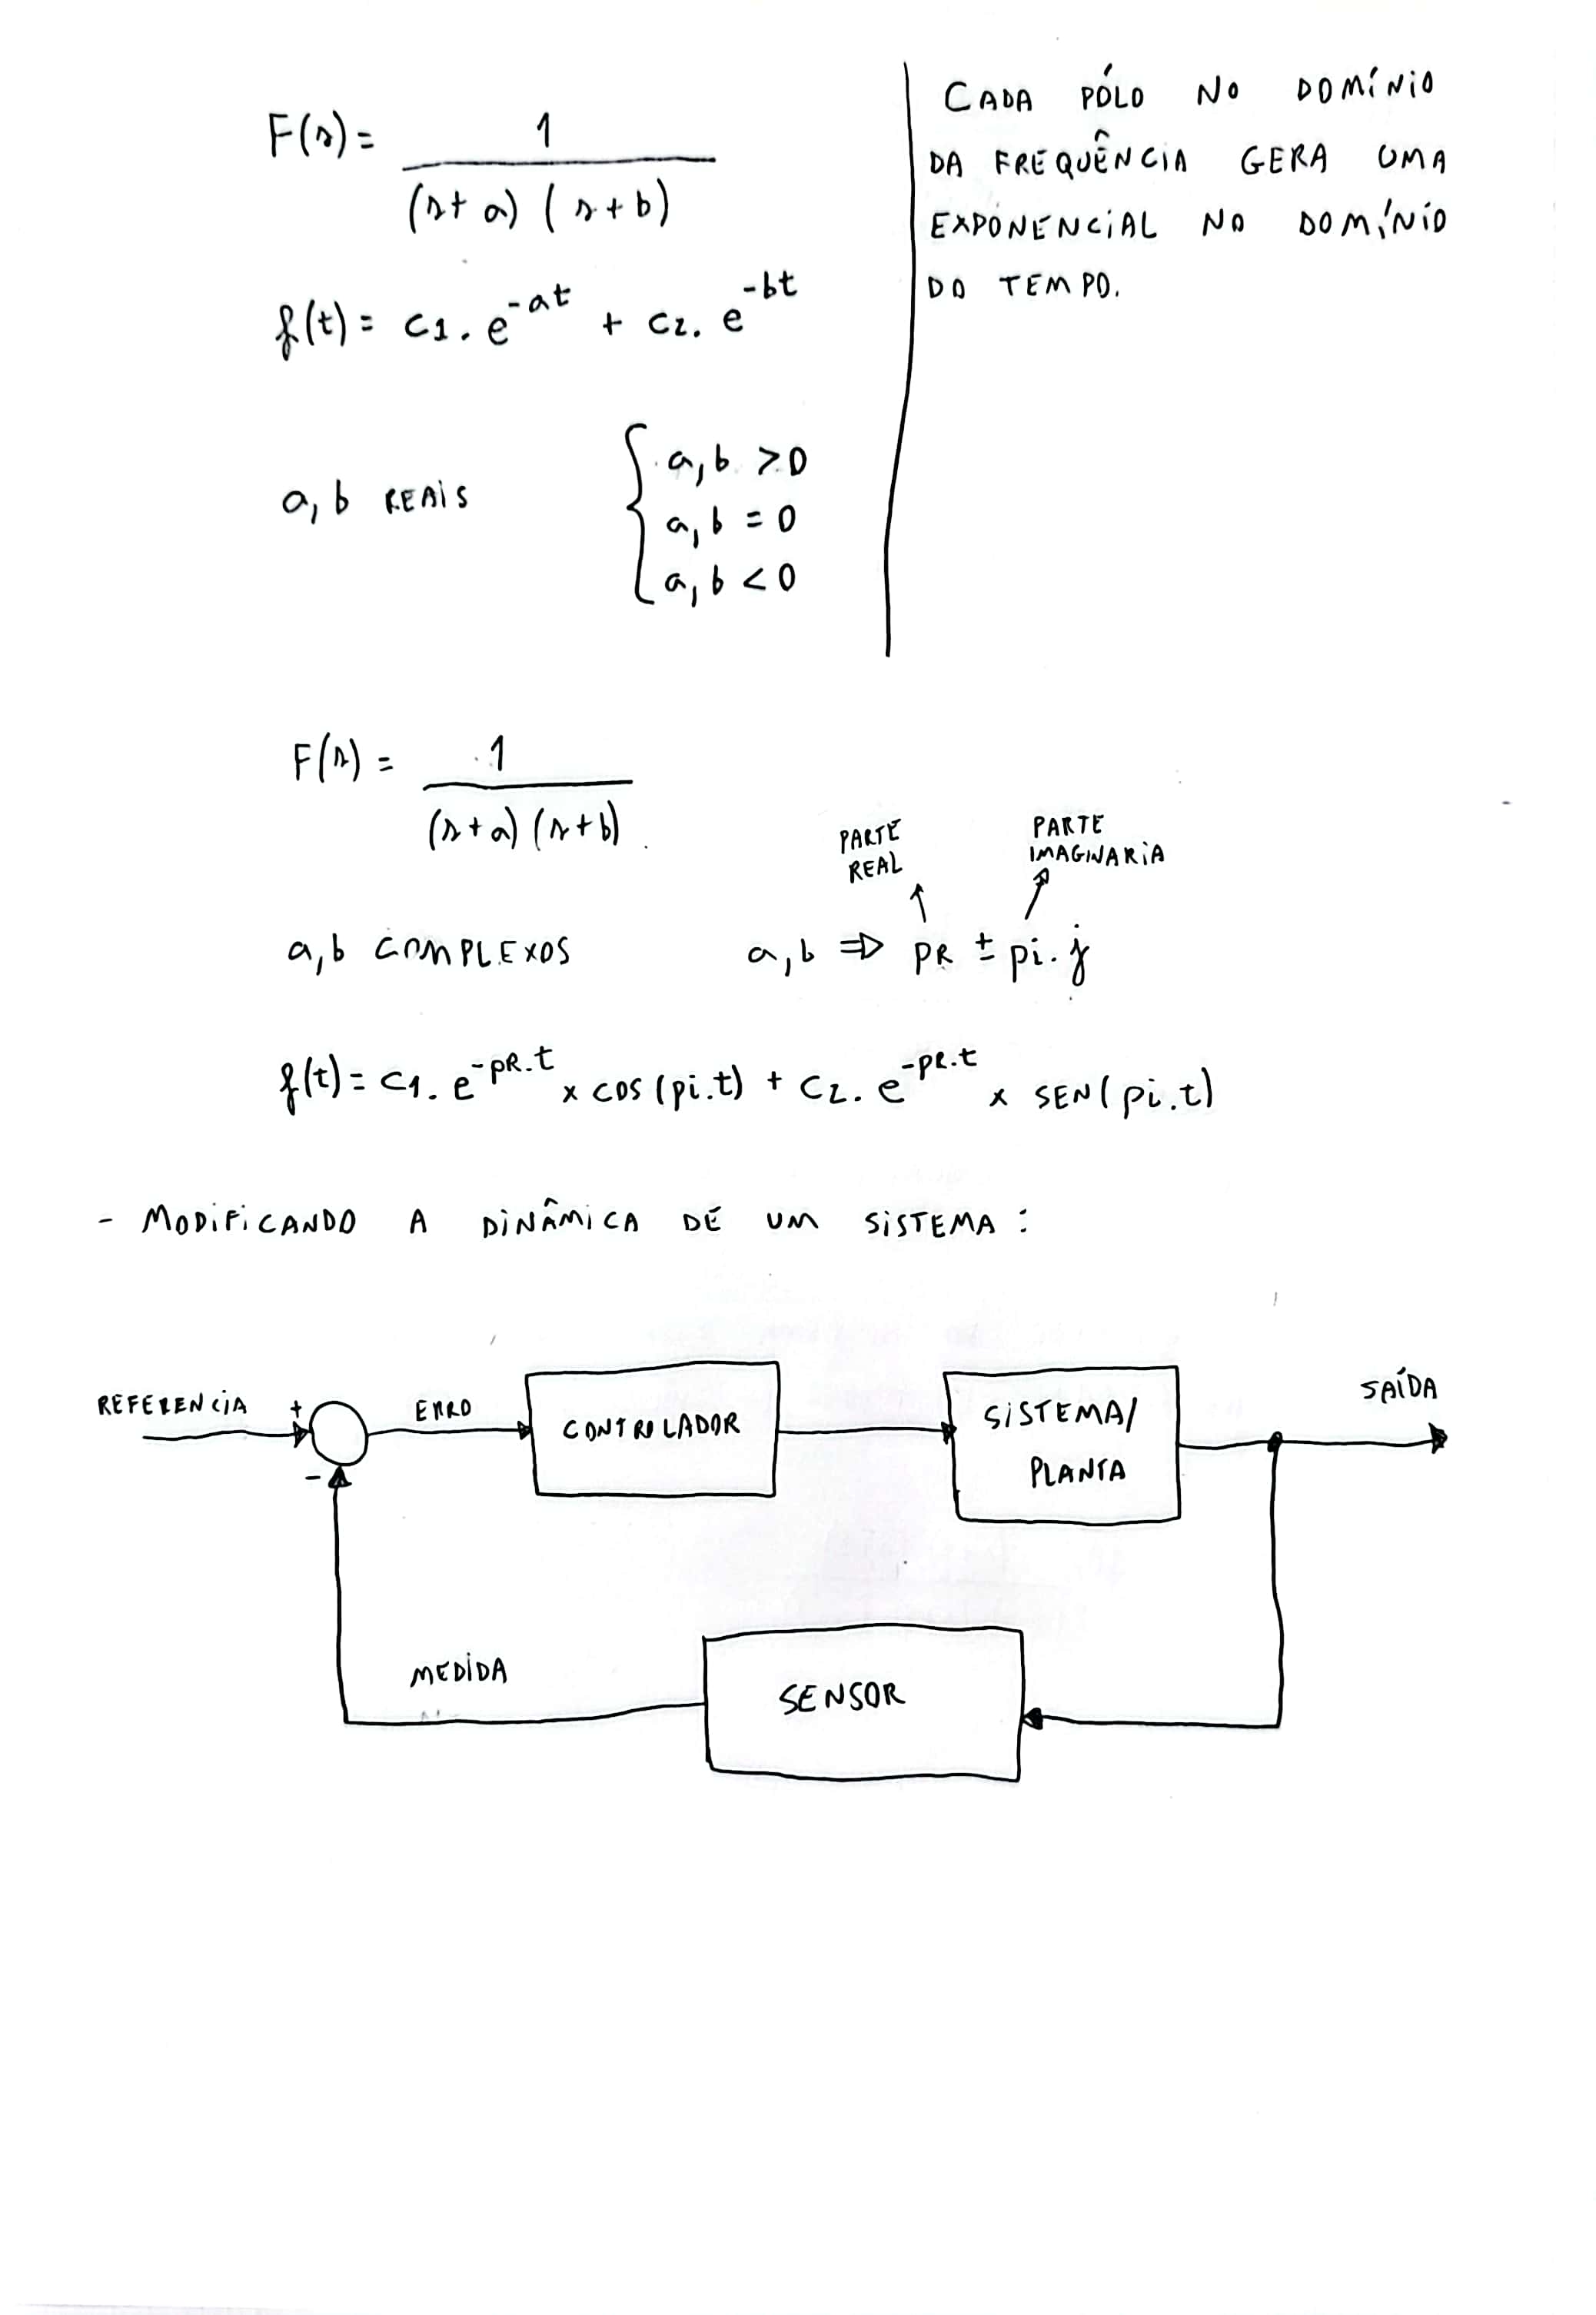 F(s) = 1 / (s + a) (s + b)
f(t) = c1 . e^-at + c2 . e^-bt
a, b REAIS { a, b > 0
a, b = 0
a, b < 0
CADA PÓLO NO DOMÍNIO
DA FREQUÊNCIA GERA UMA
EXPONENCIAL NO DOMÍNIO
DO TEMPO.
F(s) = 1 / (s + a) (s + b)
PARTE
REAL
PARTE
IMAGINARIA
a, b COMPLEXOS a, b ⇒ PR ± pi . j
f(t) = c1 . e^-PR.t x cos (pi.t) + c2 . e^-PR.t x SEN (pi.t)
- MODIFICANDO A DINÂMICA DE UM SISTEMA :
REFERENCIA + ERRO CONTROLADOR SISTEMA/ SAÍDA
- PLANTA
MEDIDA SENSOR